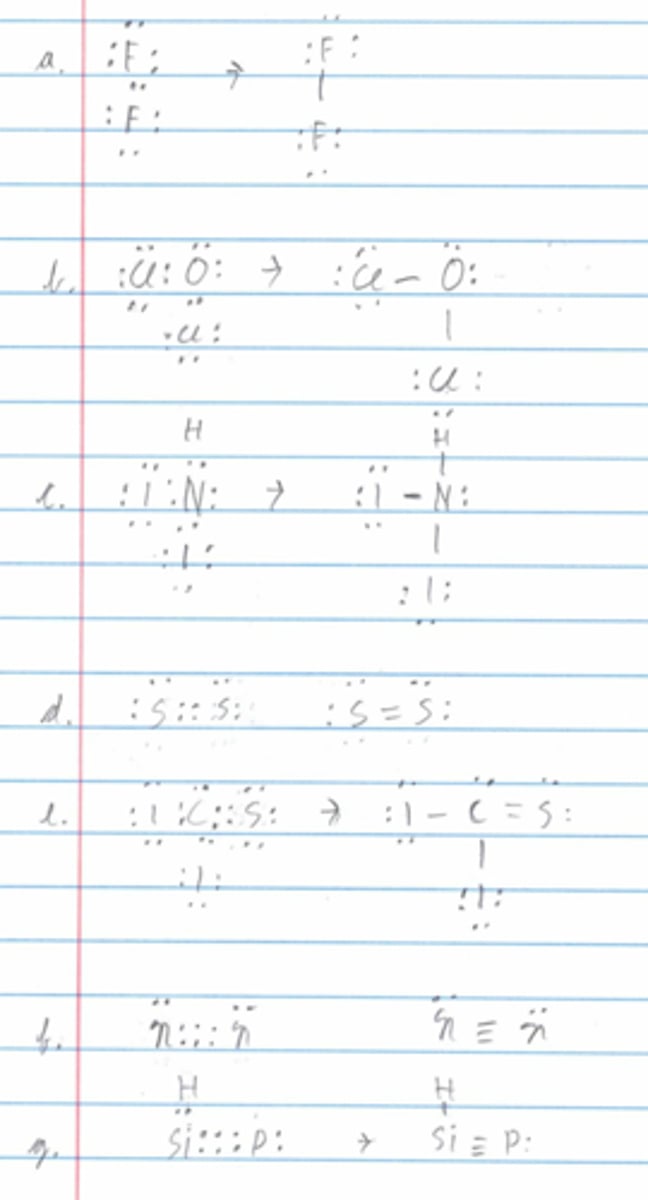 a. :F: → :F:
:F: |
:F:
b. :Cl: O: → :Cl – O:
·Cl: |
:Cl:
H H
|
c. :I :N: → :I – N:
:I: |
:I:
d. :S::S: :S=S:
e. :I :C::S: → :I – C = S:
|
:I: :I:
f. n:::n n≡n
H H
g. Si:::P: → Si≡P: